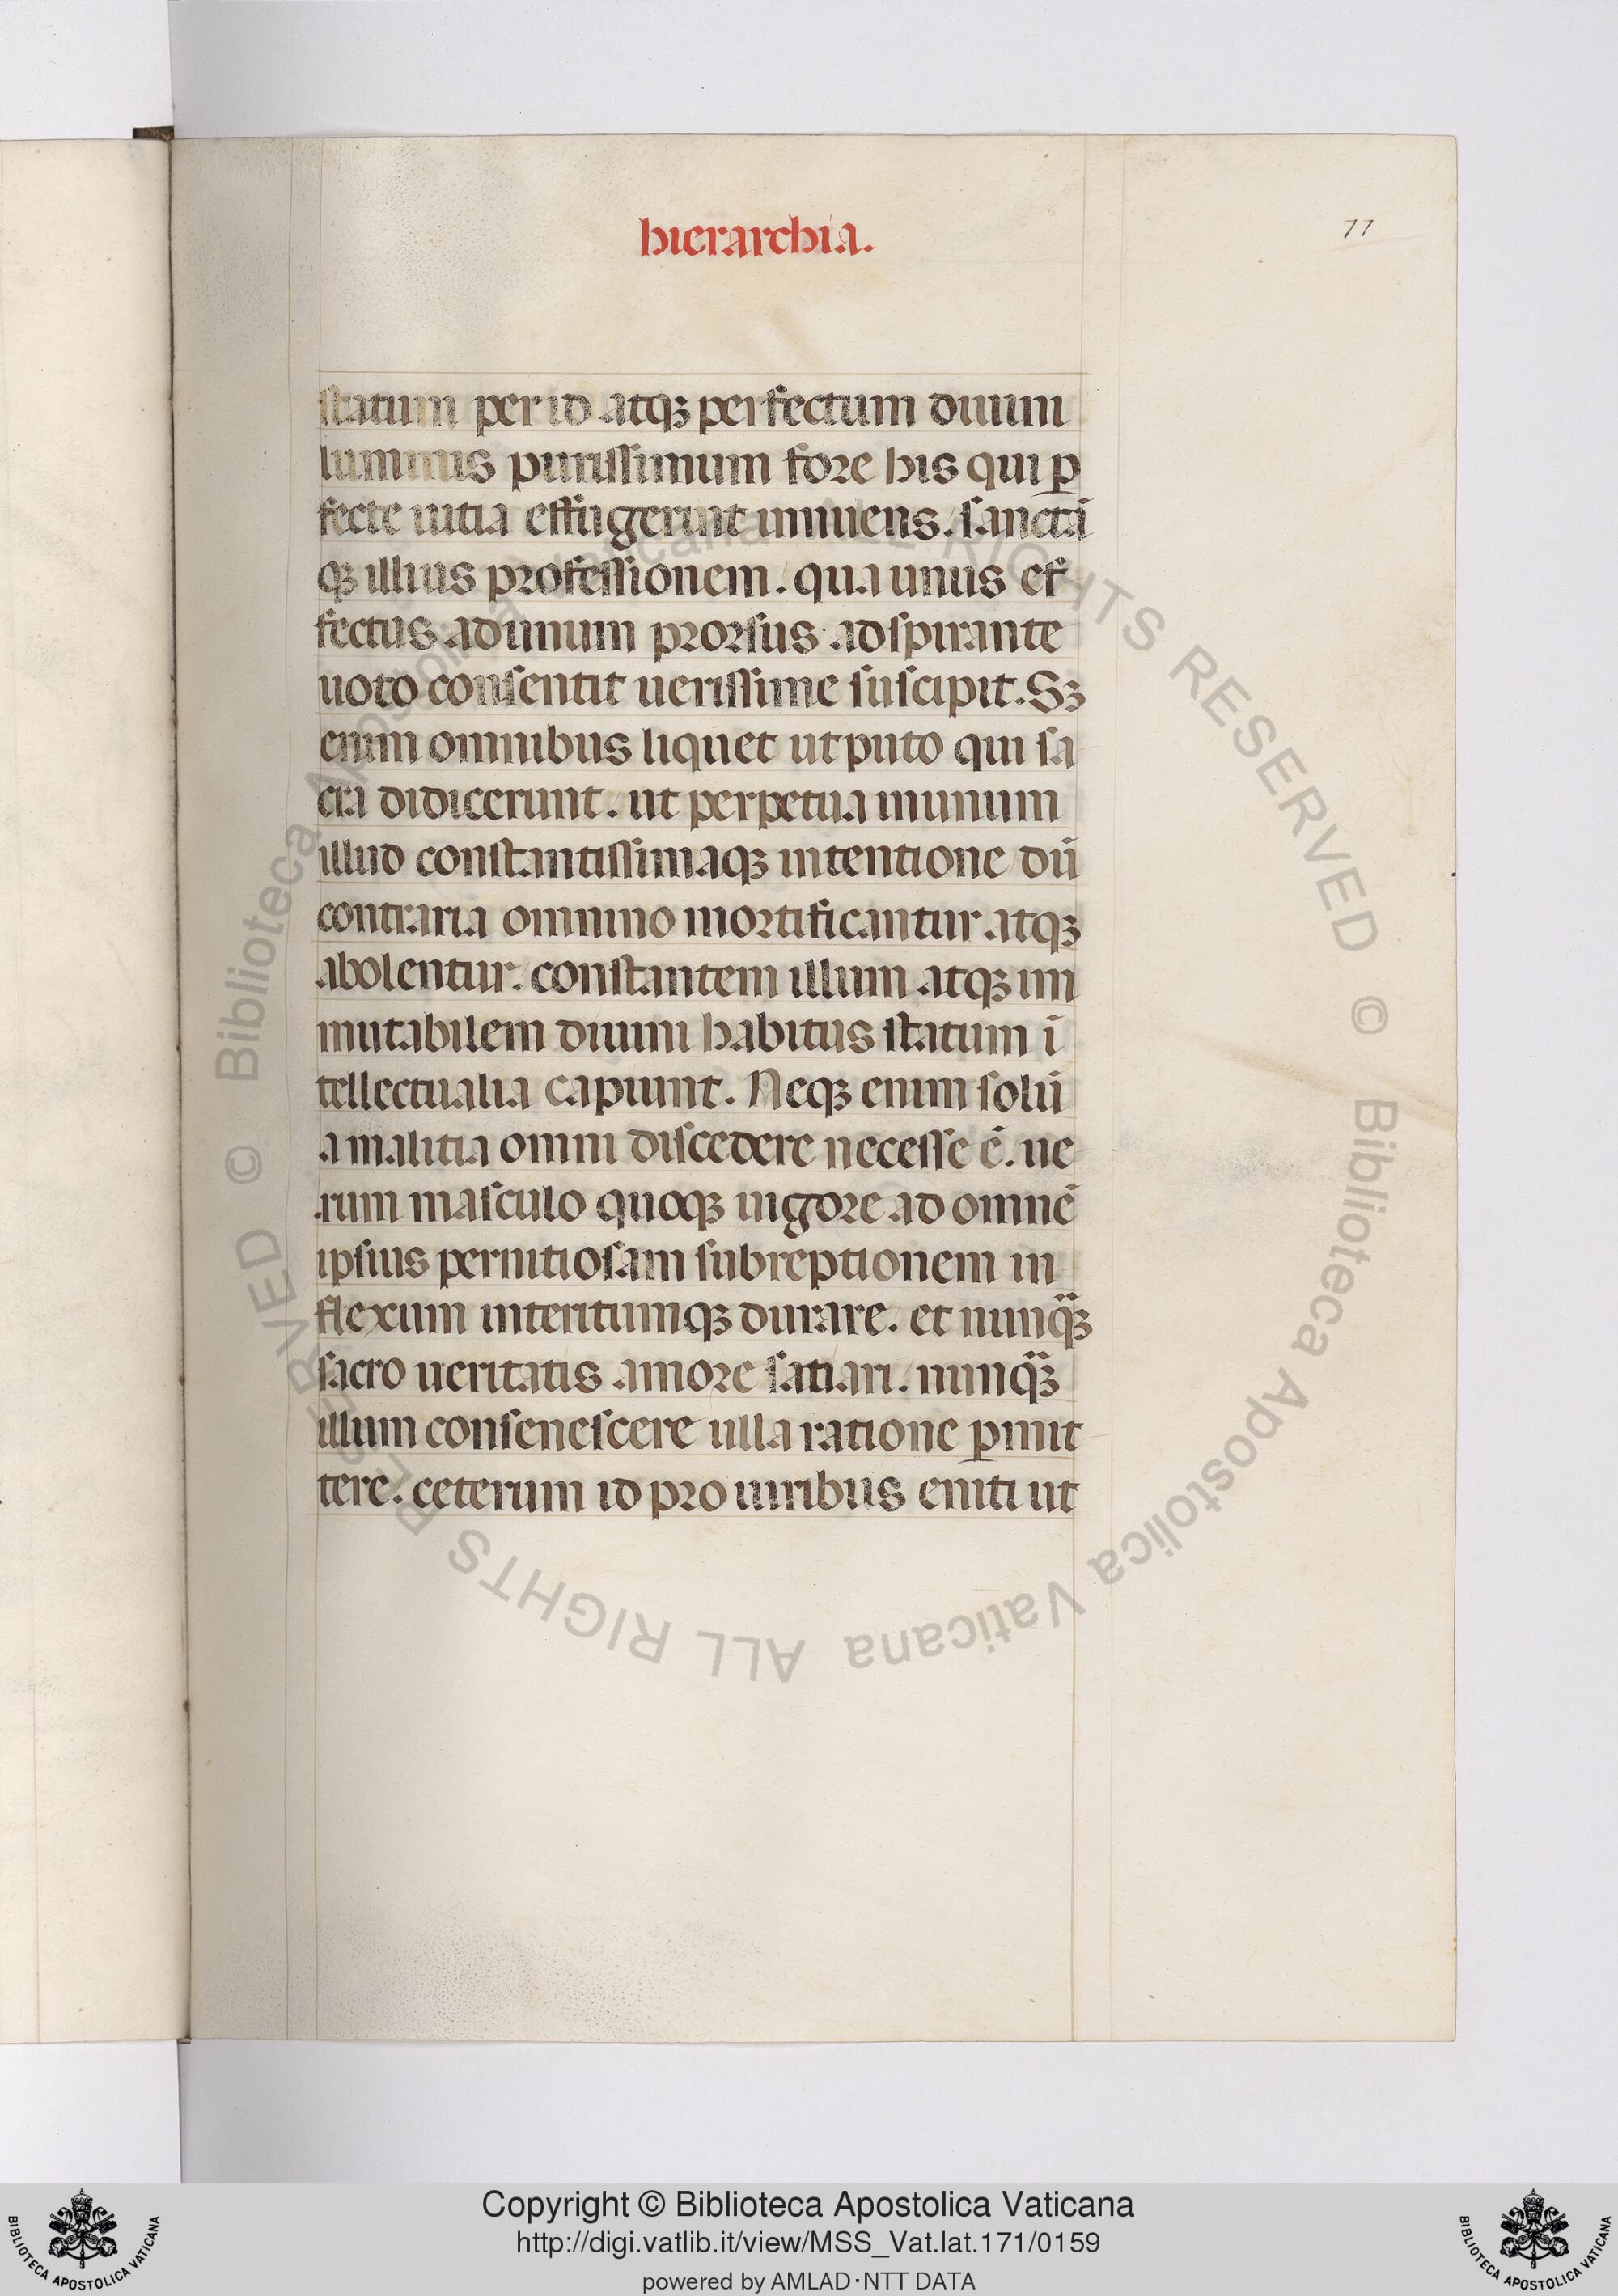 hierarchia.
77
statum per id atqꝫ perfectum diuini
luminis purissimum fore his qui ꝑ
fecte uitia effugerint innuens. sanctā
qꝫ illius professionem. qua unus ef
fectus ad unum prorsus adspirante
uoto consentit uerissime suscipit. Sꝫ
enim omnibus liquet ut puto qui sa
cra didicerunt. ut perpetua in unum
illud constantissimaqꝫ intentione dū
contraria omnino mortificantur atqꝫ
abolentur. constantem illum atqꝫ im
mutabilem diuini habitus statum ī
tellectualia capiunt. Neqꝫ enim solū
a malitia omni discedere necesse ē. ue
rum masculo quoqꝫ uigore ad omnē
ipsius pernitiosam subreptionem in
flexum interitumqꝫ durare. et nunq̈ꝫ
sacro ueritatis amore satiari. nunq̈ꝫ
illum consenescere ulla ratione ꝑmit
tere. ceterum id pro uiribus eniti ut
© Biblioteca Apostolica Vaticana ALL RIGHTS RESERVED
© Biblioteca Apostolica Vaticana ALL RIGHTS RESERVED
Copyright © Biblioteca Apostolica Vaticana
http://digi.vatlib.it/view/MSS_Vat.lat.171/0159
powered by AMLAD·NTT DATA
BIBLIOTECA APOSTOLICA VATICANA
BIBLIOTECA APOSTOLICA VATICANA